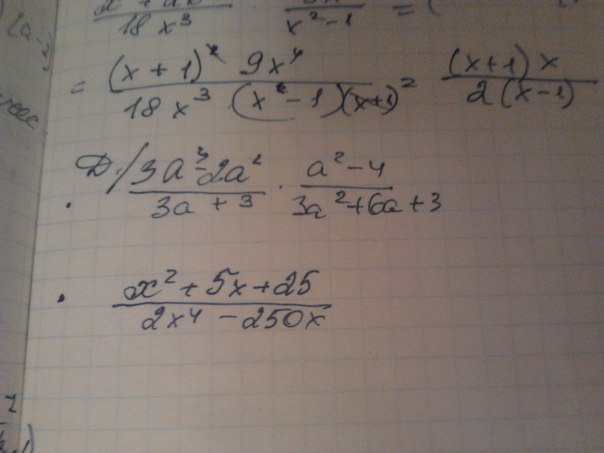 18x³ x²-1 = (
= (x+1)² 9x⁴ / 18x³ (x²-1)(x+1)² (x+1)x / 2(x-1)
Д/ 3a³-2a² / 3a+3 · a²-4 / 3a²+6a+3
x²+5x+25 / 2x⁴-250x